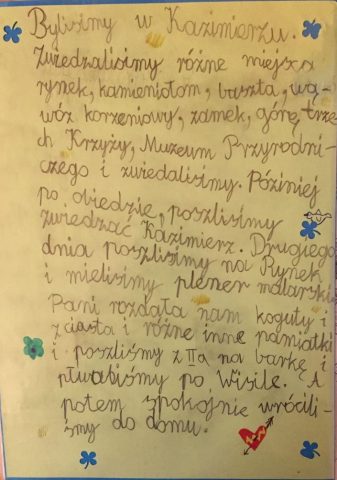 Byliśmy w Kazimierzu.
Zwiedzaliśmy różne miejsca
rynek, kamieniołom, baszta, wą-
wóz korzeniowy, zamek, górę trze-
ch Krzyży, Muzeum Przyrodni-
czego i zwiedaliśmy. Późiniej
po obiedzie, poszliśmy
zwiedzać Kazimierz. Drugiego
dnia poszliśmy na Rynek
i mieliśmy plener malarski
Pani rozdała nam koguty i
z ciasta i różne inne pamiątki
i poszliśmy z IIa na barkę i
pływabiśmy po Wisile. A
potem spokojnie wrócili-
śmy do domu.